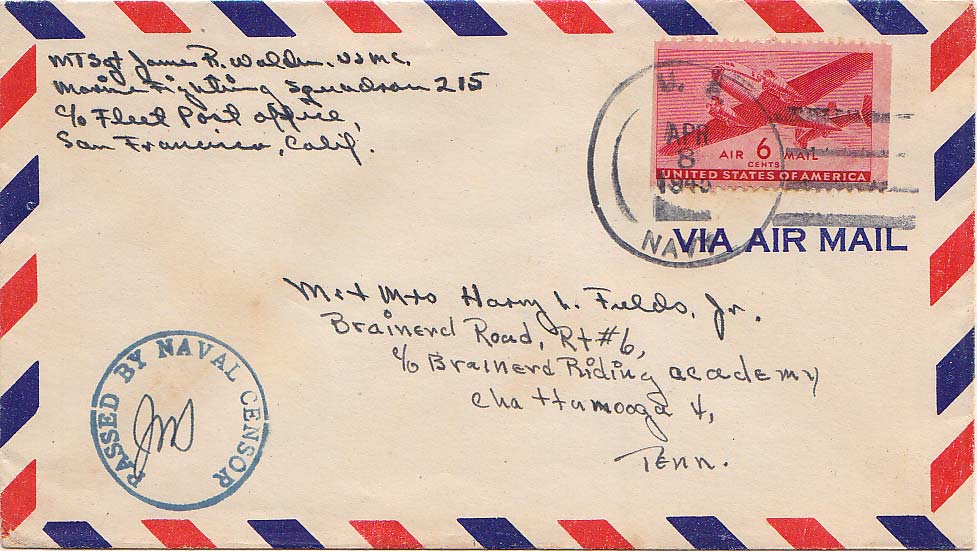 MTSgt James R. Walden, USMC.
Marine Fighting Squadron 215
c/o Fleet Post office,
San Francisco, Calif.
U.
APR
8
1945
NAVY
AIR 6 MAIL
CENTS
UNITED STATES OF AMERICA
VIA AIR MAIL
Mr & Mrs Harry L. Fulds, Jr.
Brainerd Road, Rt #6,
c/o Brainerd Riding academy
Chattanooga 4,
Tenn.
PASSED BY NAVAL CENSOR